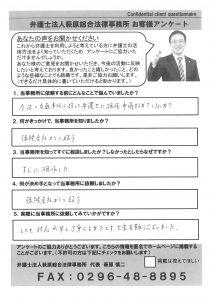 Confidential client questionnaire
弁護士法人萩原総合法律事務所 お客様アンケート
あなたの声をお聞かせください
これから弁護士を利用しようと考えている方に弁護士の活
用方法をよく知っていただくため、アンケートにご協力いた
だけませんでしょうか。
あなた様のご意見をお聞かせいただき、今後の活動に反映
したいと考えております。良かったこと嬉しかったこと、どの
ような些細なことでも結構です。是非ご協力お願いします。
(できるだけ具体的に書いていただけると助かります)
1. 当事務所に依頼する前にどんなことで悩んでいましたか?
2. 何がきっかけで、当事務所を知りましたか?
保険会社から紹介
3. 当事務所を知ってすぐに相談しましたか?しなかったとしたらなぜですか?
すぐに相談した
4. 何が決め手となって当事務所に依頼しましたか?
保険会社から紹介
5. 実際に当事務所に依頼してみていかがですか?
アンケートのご協力ありがとうございます。こちらの情報を匿名でホームページに掲載する
ことがございます。(不許可の方は下記にチェックをお願いします)
弁護士法人萩原総合法律事務所 代表 萩原 慎二
掲載は控えてほしい
FAX:0296-48-8895